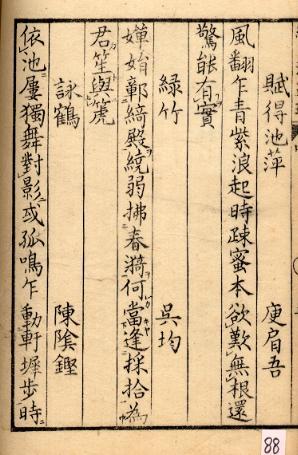 賦得池萍 庾肩吾
風翻乍青紫浪起時疎蜜本欲歎無根還
驚能有實
緑竹 呉均
嬋娟鄣綺殿繞弱拂春漪何當逢採拾為
君笙與箎
詠鶴 陳陰鏗
依池屢獨舞對影或孤鳴乍動軒墀步時
88